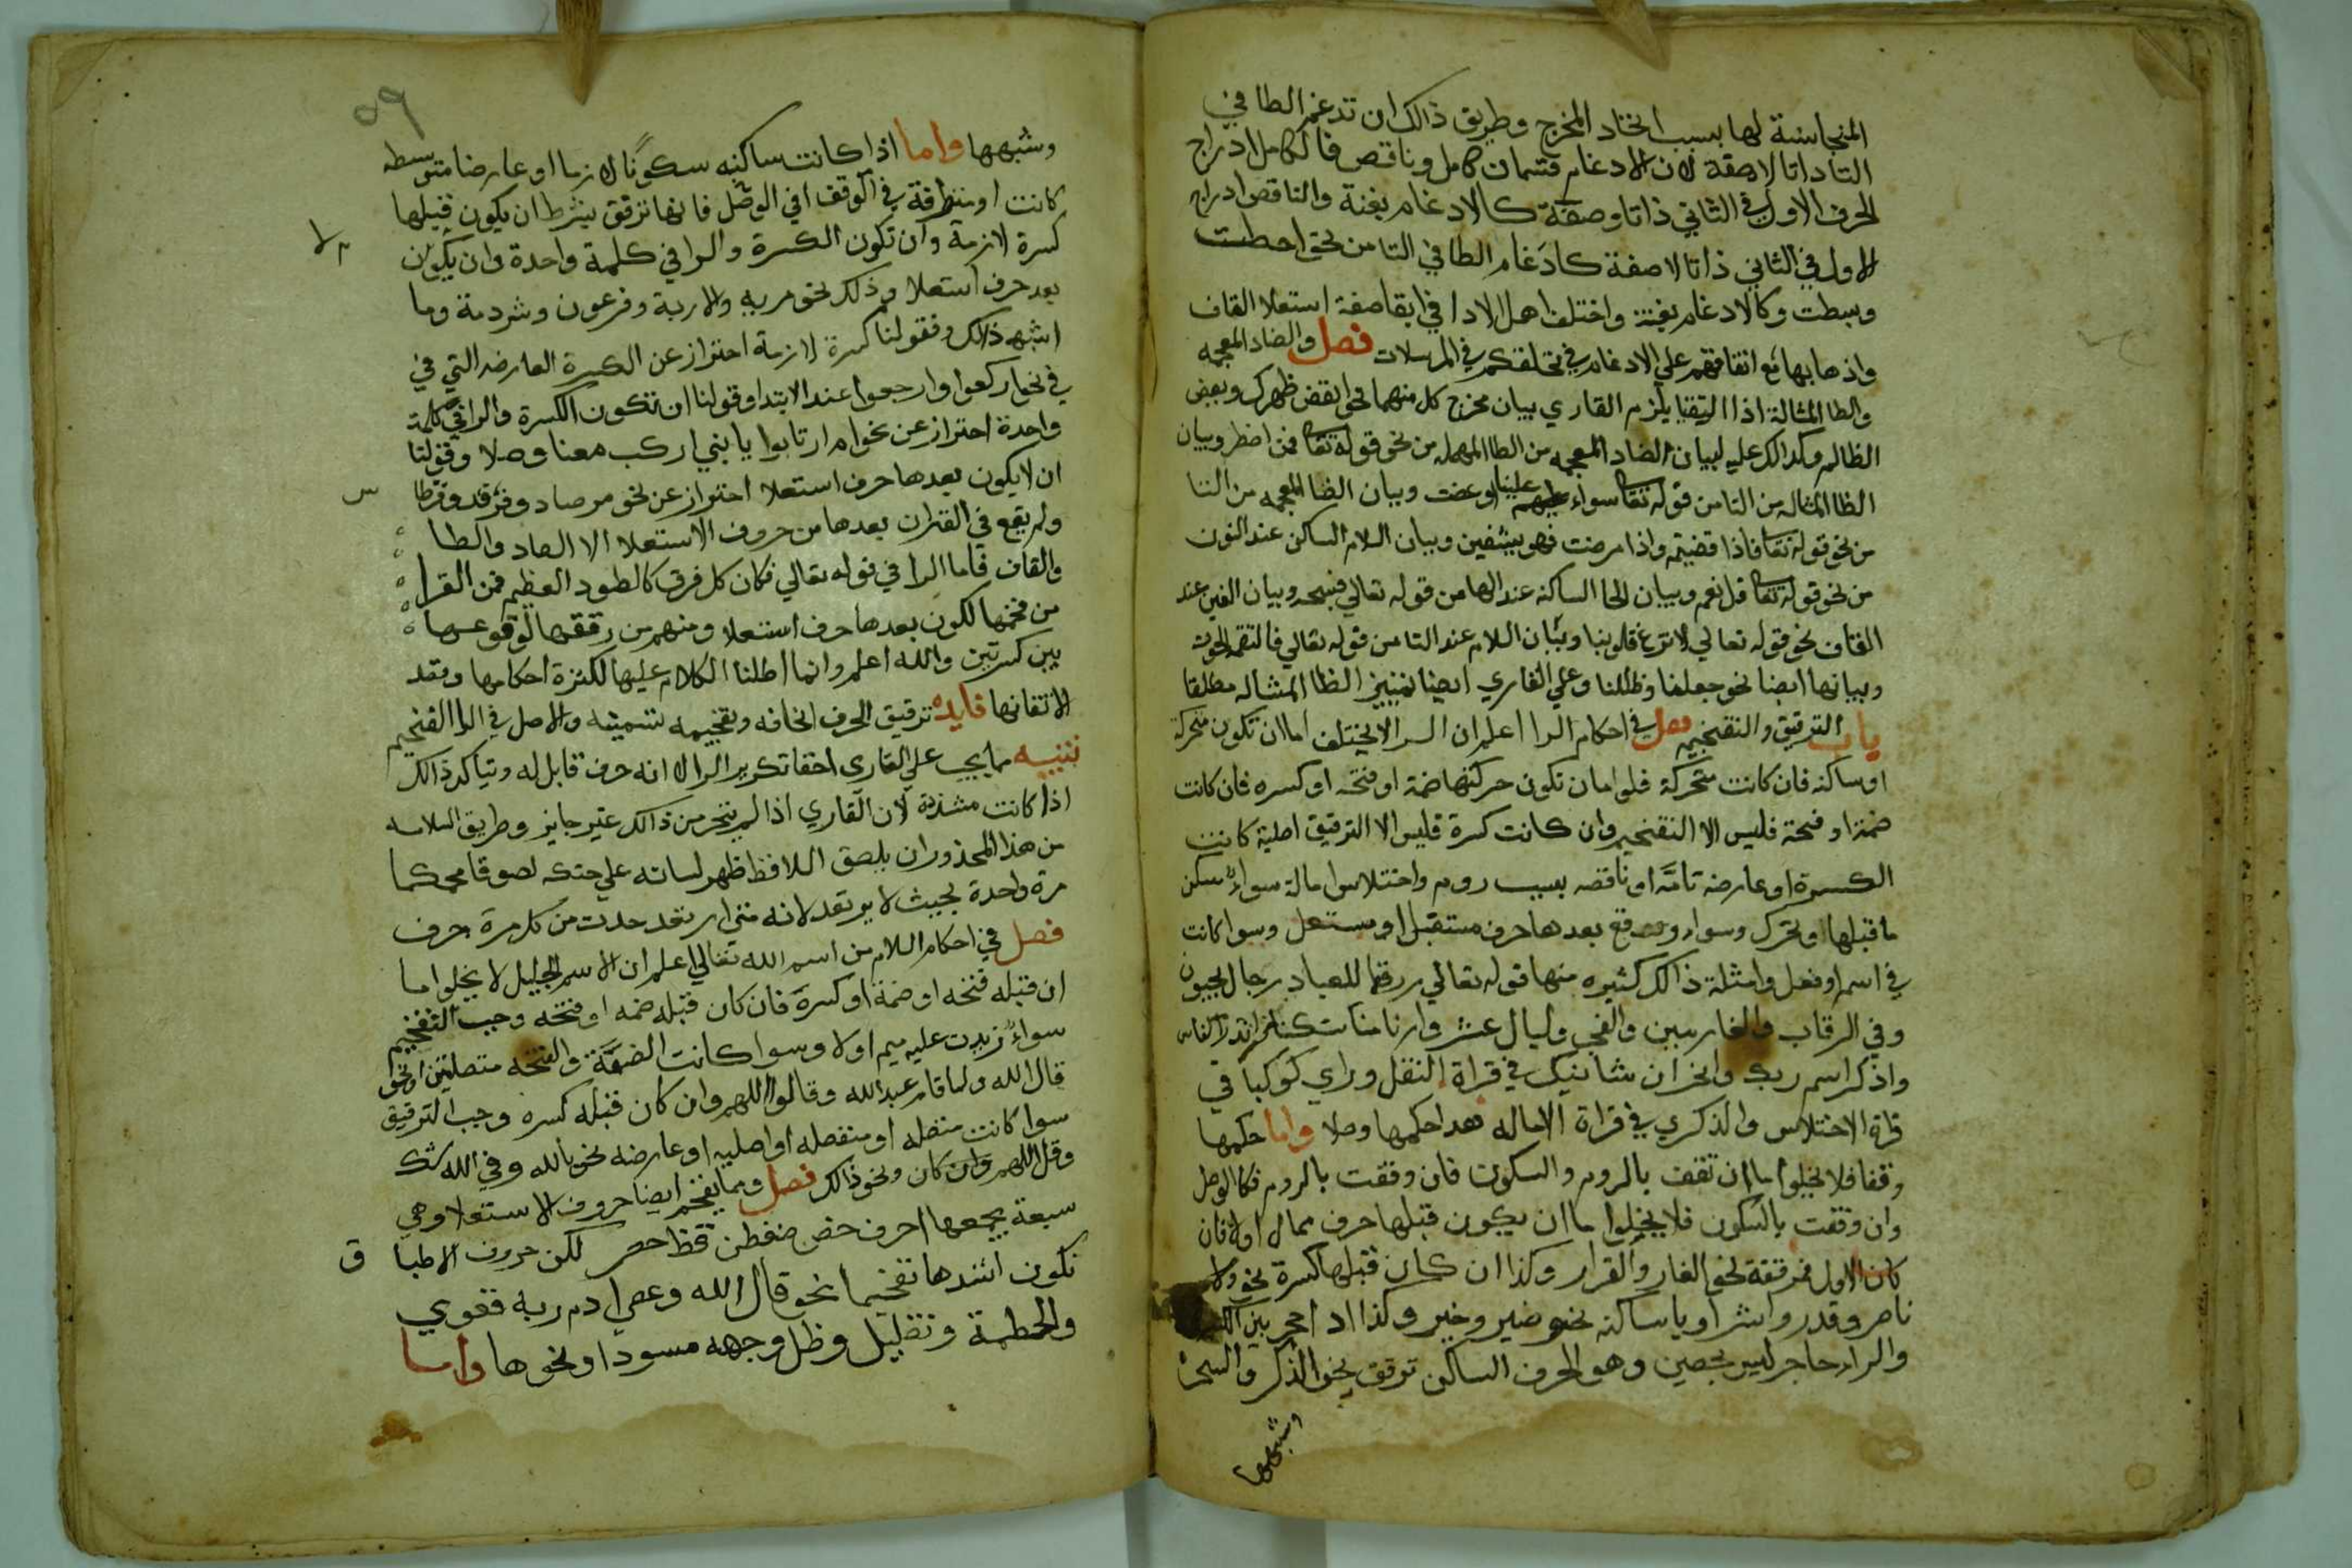 المتجانسة لها بسبب اتحاد المخرج وطريق ذالك ان تدغم الطا في
التا ذاتا لا صفة لان الادغام قسمان كامل وناقص فالكامل ادراج
الحرف الاول في الثاني ذاتا وصفة كالادغام بغنة والناقص ادراج
الاول في الثاني ذاتا لا صفة كادغام الطا في التا من نحو احطت
وبسطت وكالادغام بغنة واختلف اهل الادا في ابقا صفة استعلا القاف
واذهابها مع اتفاقهم علي الادغام في نخلقكم في المرسلات فصل والضاد المعجمه
والظا المشالة اذا التقيا يلزم القاري بيان مخرج كل منهما نحو انقض ظهرك وبعض
الظالم وكذالك عليه لبيان الضاد المعجمه من الطا المهمله من نحو قوله تعا فمن اضطر وبيان
الظا المشاله من التا من قوله تعا سواء علينا اوعضت وبيان الضا المعجمه من التا
من نحو قوله تعا فاذا قضيتم واذا مرضت فهو يشفين وبيان اللام الساكن عند النون
من نحو قوله تعا قل نعم وبيان الحا الساكنه عند الها من قوله تعالي فسبحه وبيان الغين عند
القاف نحو قوله تعالي لا تزغ قلوبنا وبيان اللام عند التا من قوله تعالي فالتقمه الحوت
وبيانها ايضا نحو جعلنا وظللنا وعلي القاري ايضا تمييز الظا المشاله مطلقا
باب الترقيق والتفخيم فصل في احكام الرا اعلم ان الرا لا يختلف اما ان تكون متحركة
او ساكنه فان كانت متحركة فلو اما ان تكون حركتها ضمة او فتحه او كسره فان كانت
ضمة او فتحة فليس الا التفخيم وان كانت كسرة فليس الا الترقيق اصلية كانت
الكسرة او عارضه تامَّه او ناقصه بسبب روم واختلاس امالة سواء سكن
ما قبلها او تحرك وسواء وقع بعدها حرف مستفل او مستعل وسوا كانت
في اسم او فعل وامثلة ذالك كثيره منها قوله تعالي رزقا للعباد رجال يحبون
وفي الرقاب والغارمين والفجر وليال عشر وارنا مناسكنا وانذر الناس
واذكر اسم ربك وانحر ان شانيك في قراة النقل وراي كوكبا في
قراة الاختلاس والذكري في قراة الاماله هذا حكمها وصلا واما حكمها
وقفا فلا يخلوا اما ان تقف بالروم والسكون فان وقفت بالروم فكالوصل
وان وقفت بالسكون فلا يخلوا ما ان يكون قبلها حرف ممال اولا فان
كان الاول فمرققة نحو الغار والقرار وكذا ان كان قبلها كسرة نحو ولا
ناصر وقدر واشر او يا ساكنه نحو ضير وخير وكذا اد احجر بين
والرا حاجز ليس بحصين وهو الحرف الساكن ترقق نحو الذكر والسحر
وشبهها
٥٩
وشبهها واما اذا كانت ساكنه سكونًا لازما او عارضا متوسطه
كانت او متطرفة في الوقف افي الوصل فانها ترقق بشرط ان يكون قبلها
كسرة لازمة وان تكون الكسرة والرا في كلمة واحدة وان يكون
بعد حرف استعلا وذلك نحو مريه والاربة وفرعون وشردمة وما
اشبه ذالك وفقولنا كسرة لازمة احتراز عن الكسرة العارضه التي في
في نحو اركعوا وارجعوا عند الابتدا وقولنا ان تكون الكسرة والرا في كلمة
واحدة احتراز عن نحو ام ارتابوا يا بني اركب معنا وصلا وقولنا
ان لا يكون بعدها حرف استعلا احتراز عن نحو مرصاد وفرقه وقرطا
س
ولم يقع في القران بعدها من حروف الاستعلا الا الصاد والطا
والقاف فاما الرا في قوله تعالي فكان كل فرق كالطود العظيم فمن القرا
من فخمها لكون بعدها حرف استعلا ومنهم من رققها لوقوعها
بين كسرتين والله اعلم وانما اطلنا الكلام عليها لكثرة احكامها وفقد
الاتقانها فايده ترقيق الحرف انحافه وتفخيمه تسمينه والاصل في الرا التفخيم
تنبيه مما يجب علي القاري اخفا تكرير الرا لانه حرف قابل له ويتاكد ذالك
اذا كانت مشددة لان القاري اذا لم يتحرز من ذالك غير جايز وطريق السلامه
من هذا المحذور ان يلصق اللافظ ظهر لسانه علي حنكه لصوقا محكما
مرة واحدة بحيث لا يرتعد لانه متي ارتعد حدث من كل مرة حرف
فصل في احكام اللام من اسم الله تعالي اعلم ان الاسم الجليل لا يخلوا ما
ان قبله فتحه او ضمة او كسرة فان كان قبله ضمه او فتحه وجب التفخيم
سواءً زيدت عليه ميم اولا وسوا كانت الضمَّة والفتحه متصلتين او نحو
قال الله ولما قام عبد الله وقالوا اللهم وان كان قبله كسره وجب الترقيق
سوا كانت متصله او منفصله او اصليه او عارضه نحو بالله وفي الله شك
وقل اللهم وان كان ونحو ذالك فصل ومما يفخم ايضا حروف الاستعلا وهي
سبعة يجمعها احرف خص ضغطن قظ حصر لكن حروف الاطبا
ق
تكون اشدها تفخيما نحو قال الله وعصي ادم ربه فغوي
والحطمة وتظليل وظل وجهه مسودا ونحوها واما